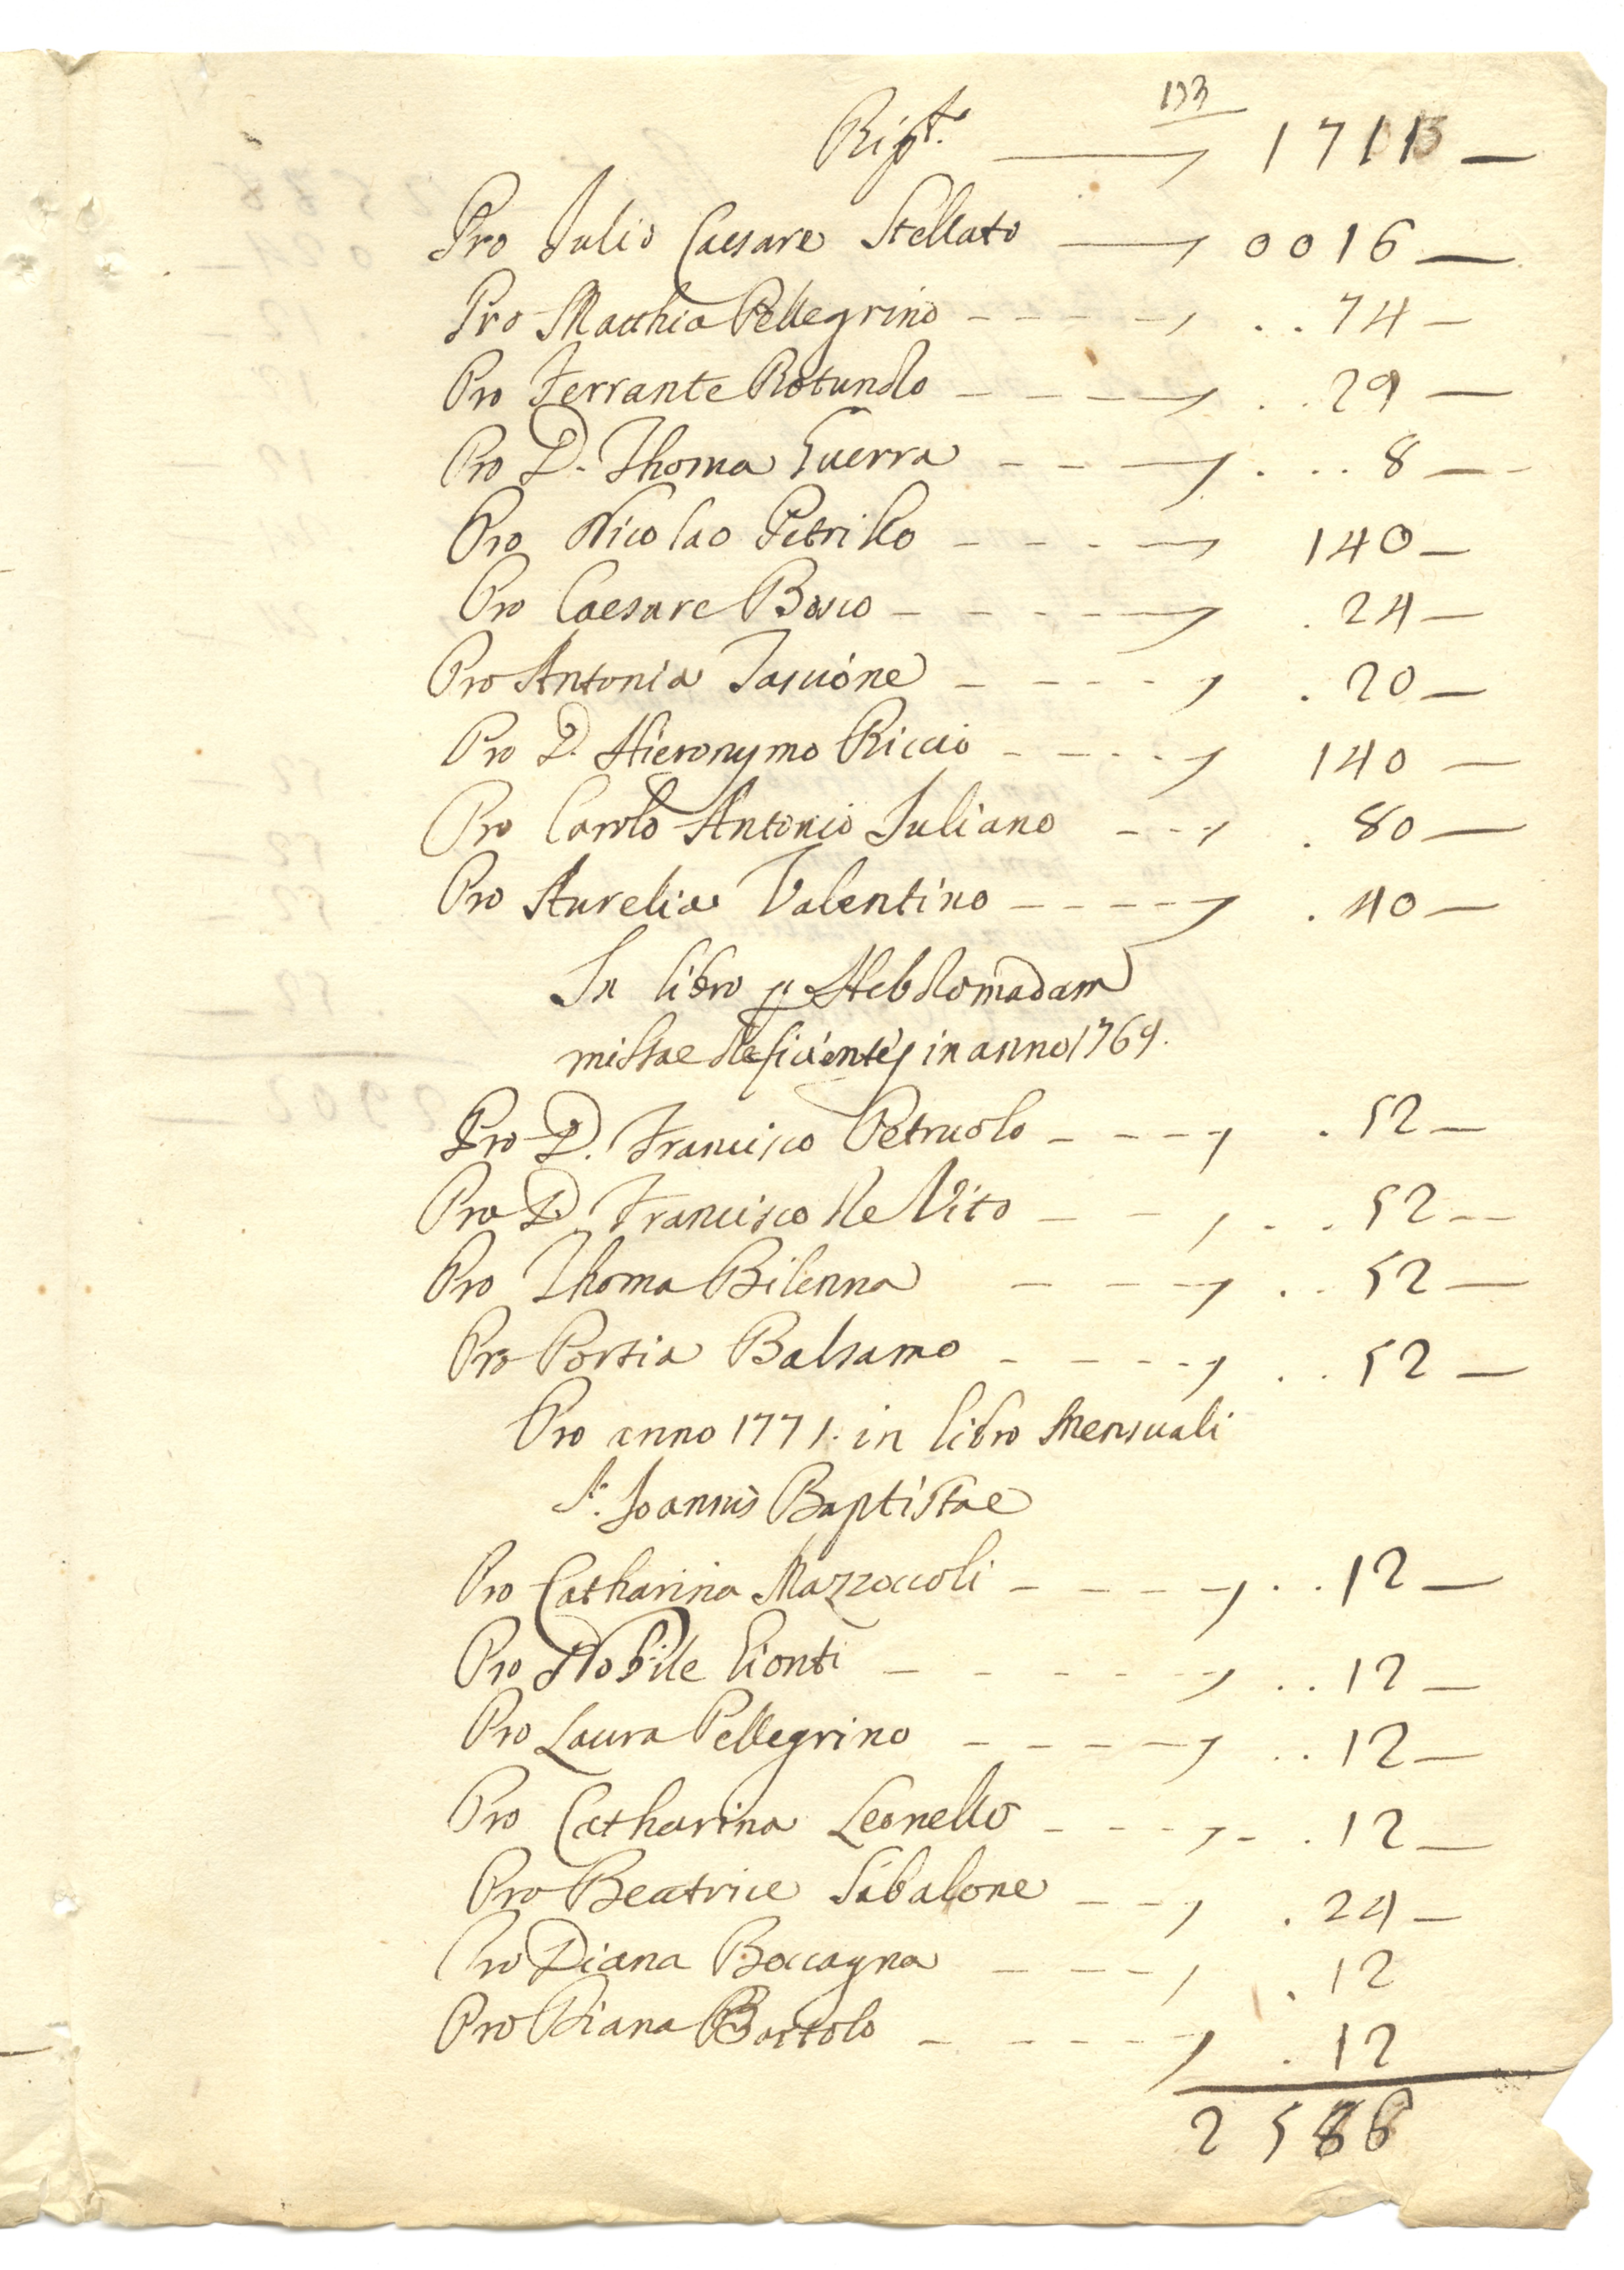 133
Ript.
Pro Julio Caesare Stellato 0016
Pro Matthia Pellegrino 74
Pro Ferrante Rotundo 29
Pro D. Thoma Guerra 8
Pro Nicolao Petrillo 140
Pro Caesare Bosco 24
Pro Antonia Tascione 20
Pro D. Hieronymo Riccio 140
Pro Carolo Antonio Juliano 80
Pro Aurelia Valentino 40
In libro p Hebdomadam
missae deficientes in anno 1769.
Pro D. Francisco Petruolo 52
Pro D. Francisco de Vito 52
Pro Thoma Bilenna 52
Pro Portia Balsamo 52
Pro anno 1771. in libro Mensuali
S. Joannis Baptistae
Pro Catharina Mazzoccoli 12
Pro Nobile Gionti 12
Pro Laura Pellegrino 12
Pro Catharina Leonello 12
Pro Beatrice Sibalone 24
Pro Diana Boccagna 12
Pro Diana Bortolo 12